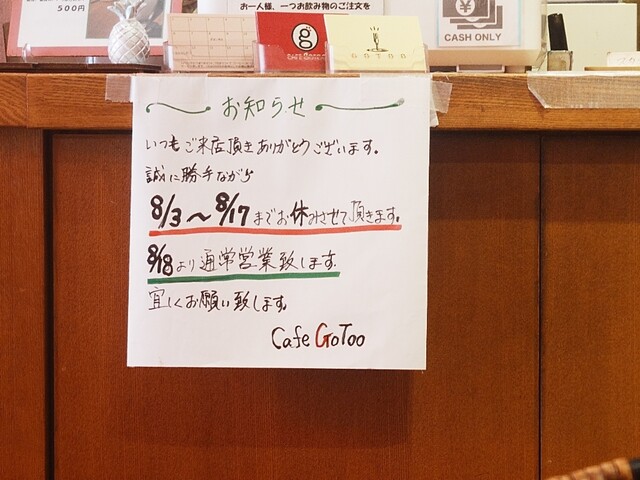 500円
お一人様、一つお飲み物のご注文を
g
GOTOO
CASH ONLY
お知らせ
いつもご来店頂きありがとうございます。
誠に勝手ながら
8/3〜8/17までお休みさせて頂きます。
8/18より通常営業致します。
宜しくお願い致します。
Cafe GoToo